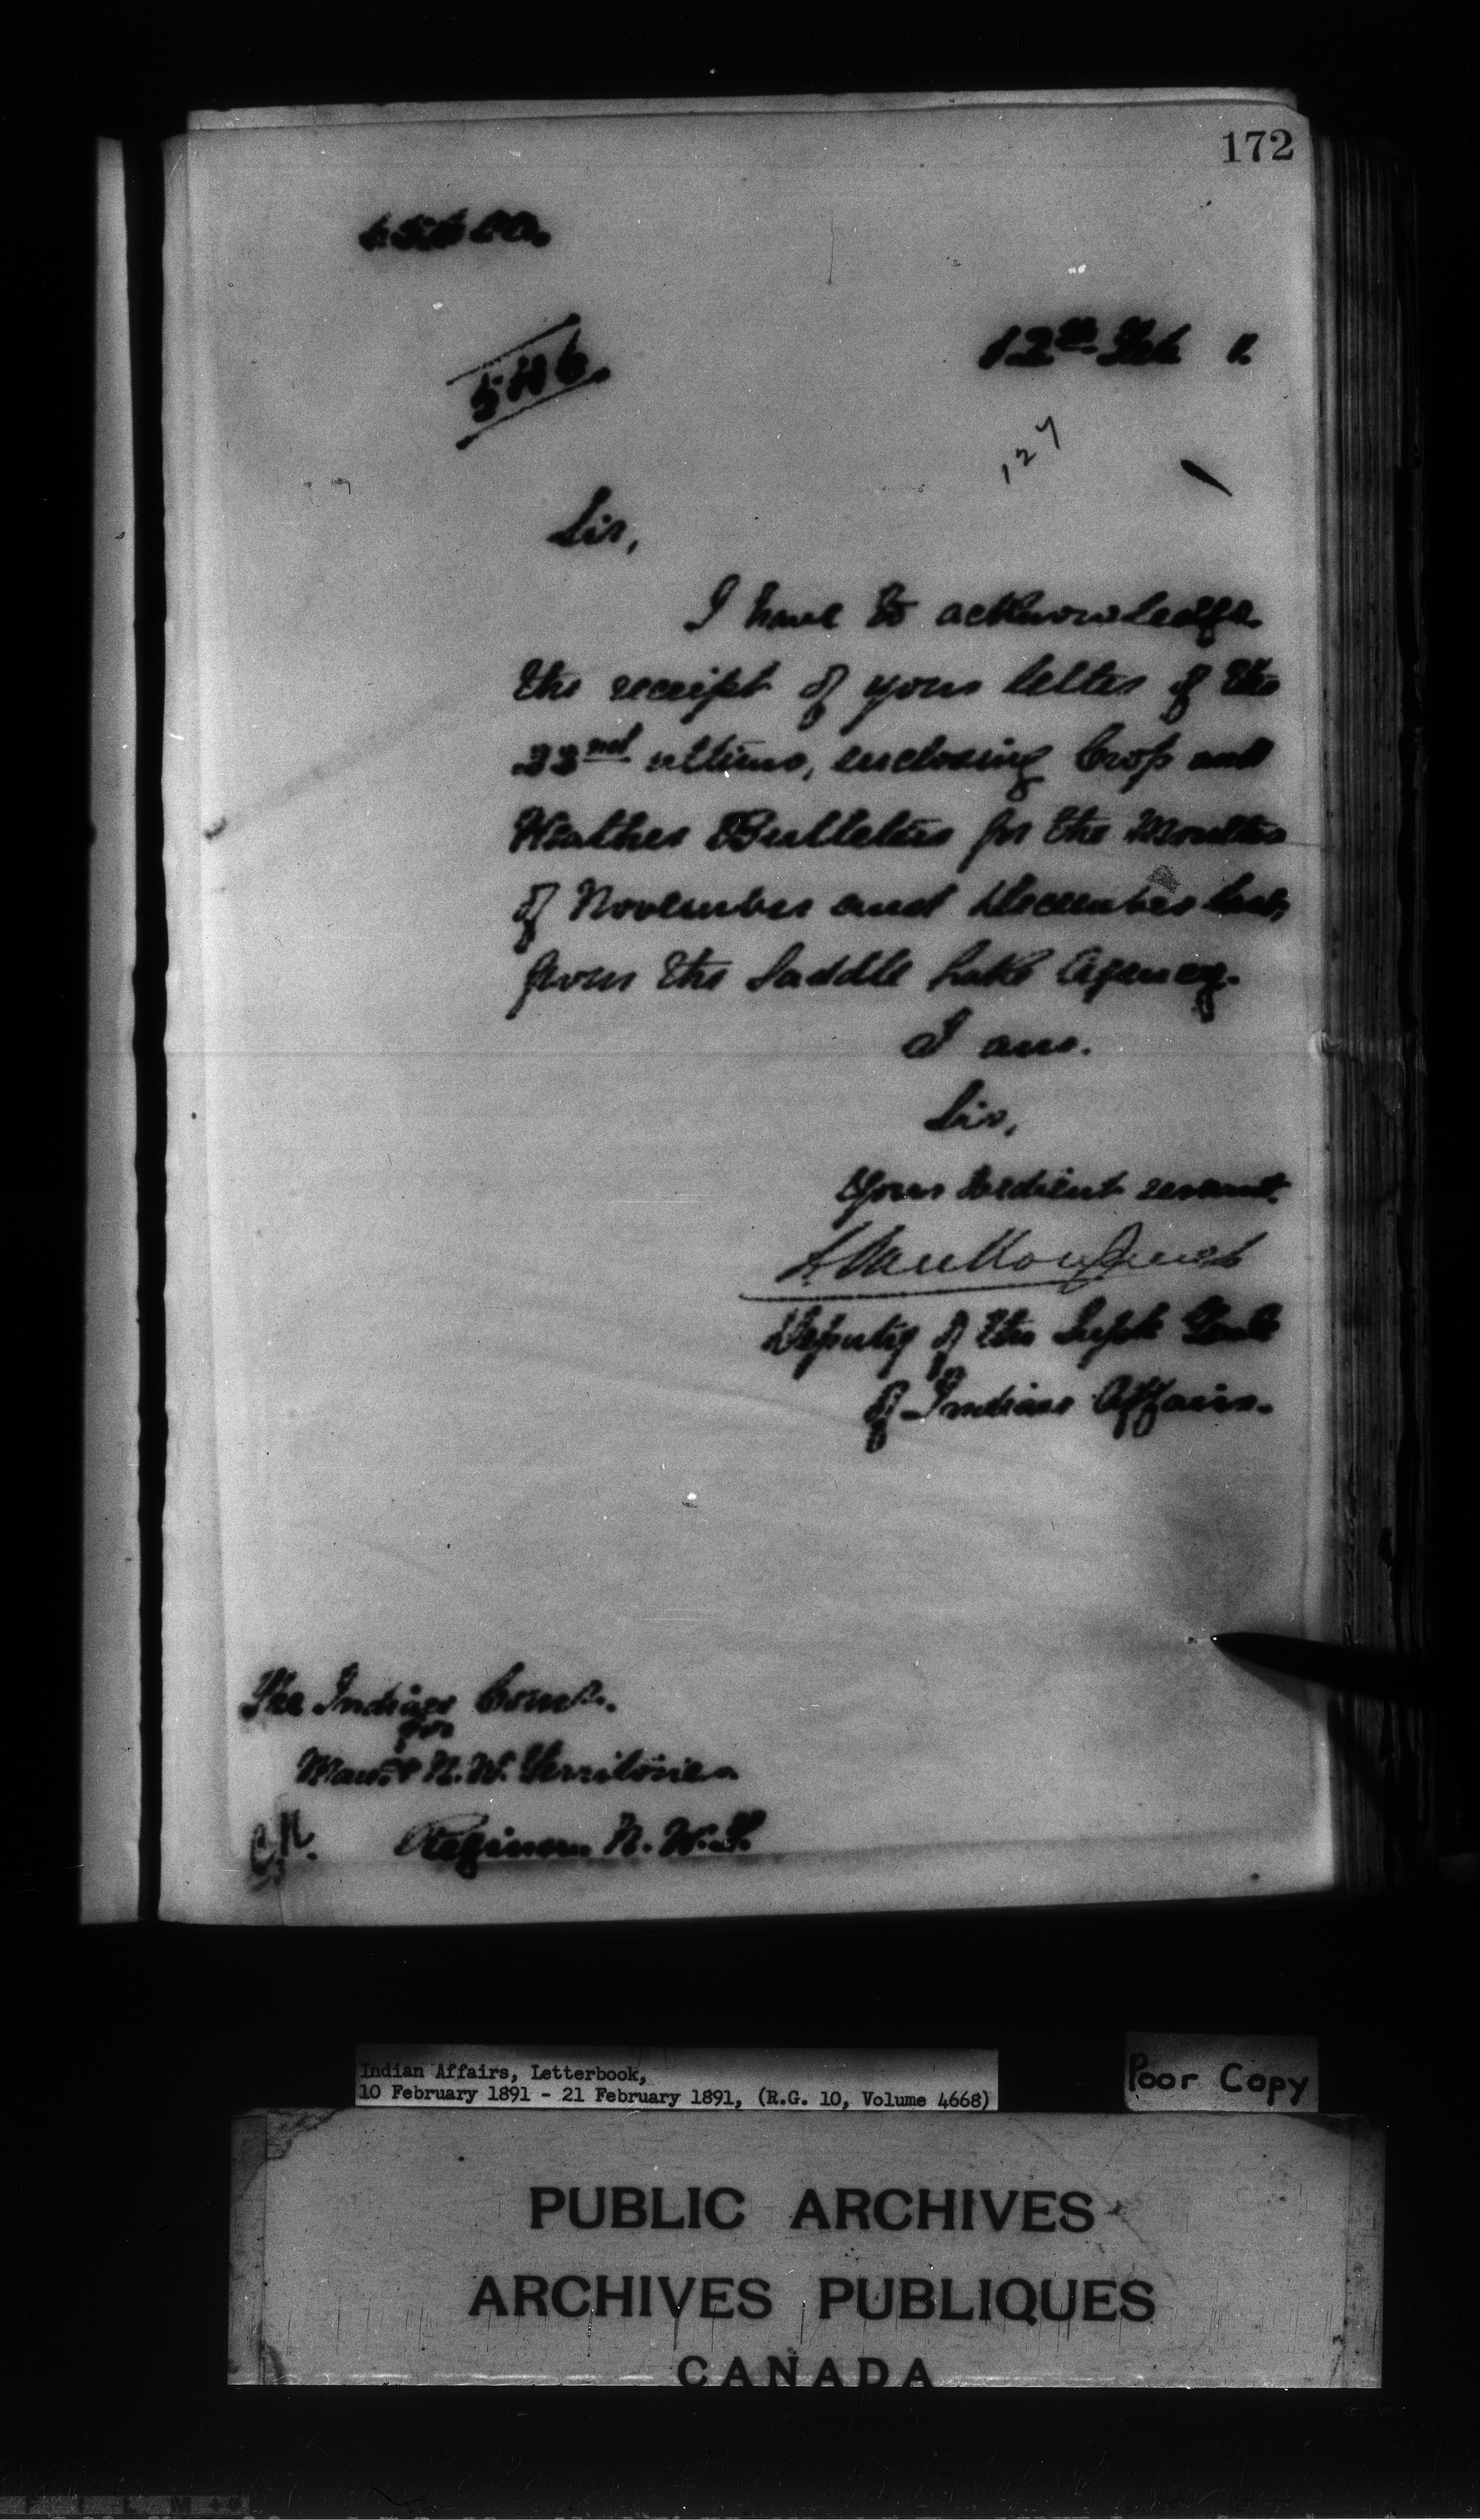 172
12th Feb 1.
127
Sir,
I have to acknowledge
the receipt of your letter of the
22nd ultimo, enclosing Crop and
Weather Bulletins for the Months
of November and December last,
from the Saddle Lake Agency.
I am.
Sir,
Your obedient servant.
L. Vankoughnet
Deputy of the Supt. Genl
of Indian Affairs.
The Indian Commr.
for
Man. & N. W. Territories
Regina N. W. T.
Indian Affairs, Letterbook,
10 February 1891 - 21 February 1891, (R.G. 10, Volume 4668)
Poor Copy
PUBLIC ARCHIVES
ARCHIVES PUBLIQUES
CANADA